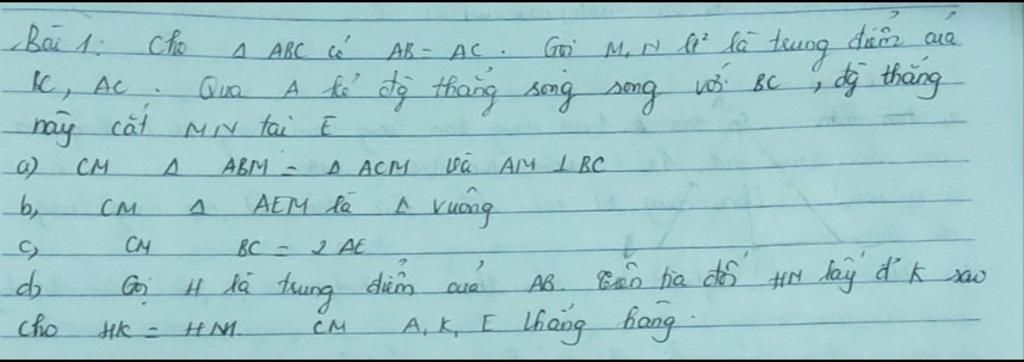 Bài 1: Cho Δ ABC có AB = AC. Gọi M, N lt² là trung điểm của
BC, AC. Qua A kẻ đg̀ thẳng song song với BC, đg̀ thẳng
này cắt MN tại E
a) CM Δ ABM = Δ ACM và AM ⊥ BC
b, CM Δ AEM là Δ vuông
c, CM BC = 2 AE
d) Gọi H là trung điểm của AB. tia đối HM lấy đ' K sao
cho HK = HM. CM A, K, E thẳng hàng.